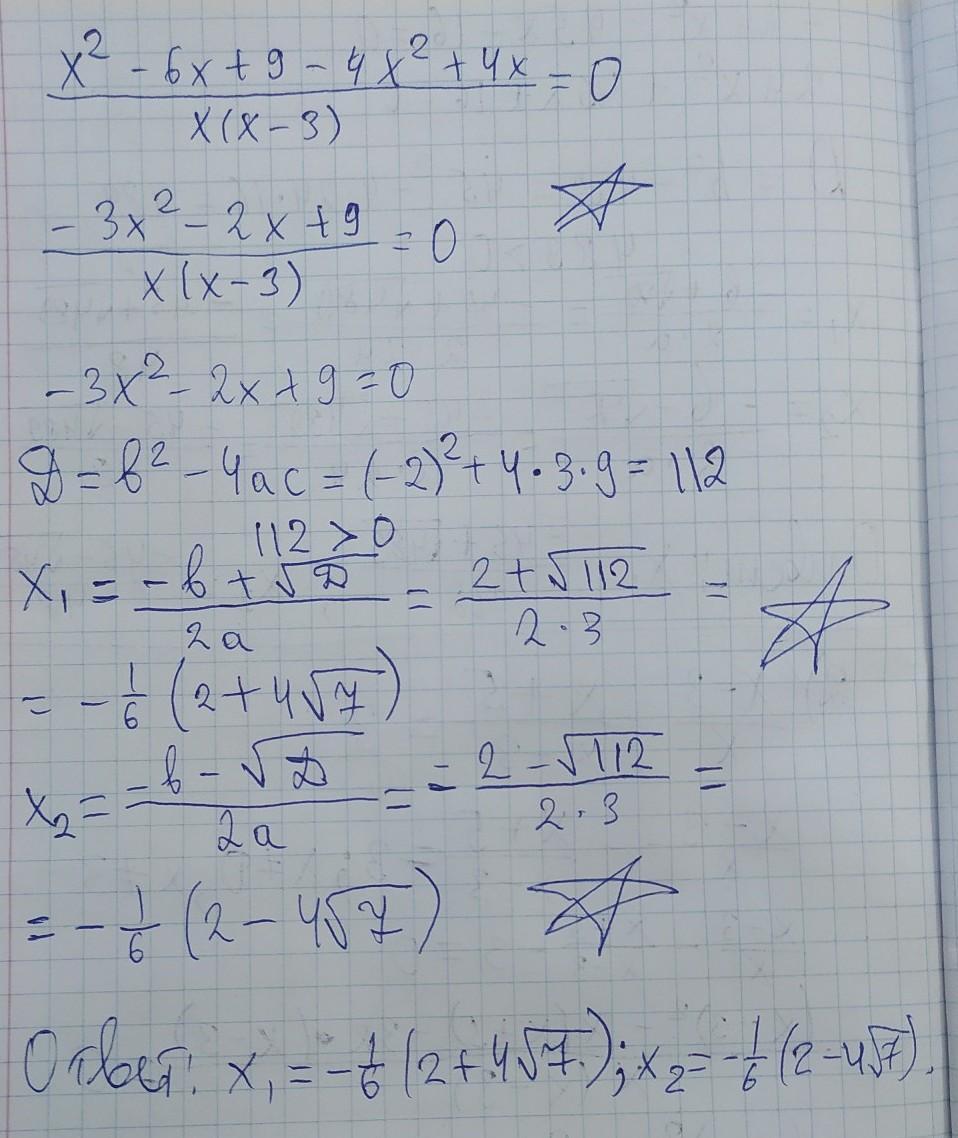 x² - 6x + 9 - 4x² + 4x / x(x - 3) = 0
- 3x² - 2x + 9 / x(x - 3) = 0
- 3x² - 2x + 9 = 0
D = b² - 4ac = (-2)² + 4·3·9 = 112
112 > 0
x₁ = -b + √D / 2a = 2 + √112 / 2·3 =
= - 1/6 (2 + 4√7)
x₂ = -b - √D / 2a = - 2 - √112 / 2·3 =
= - 1/6 (2 - 4√7)
Ответ: x₁ = - 1/6 (2 + 4√7); x₂ = - 1/6 (2 - 4√7).